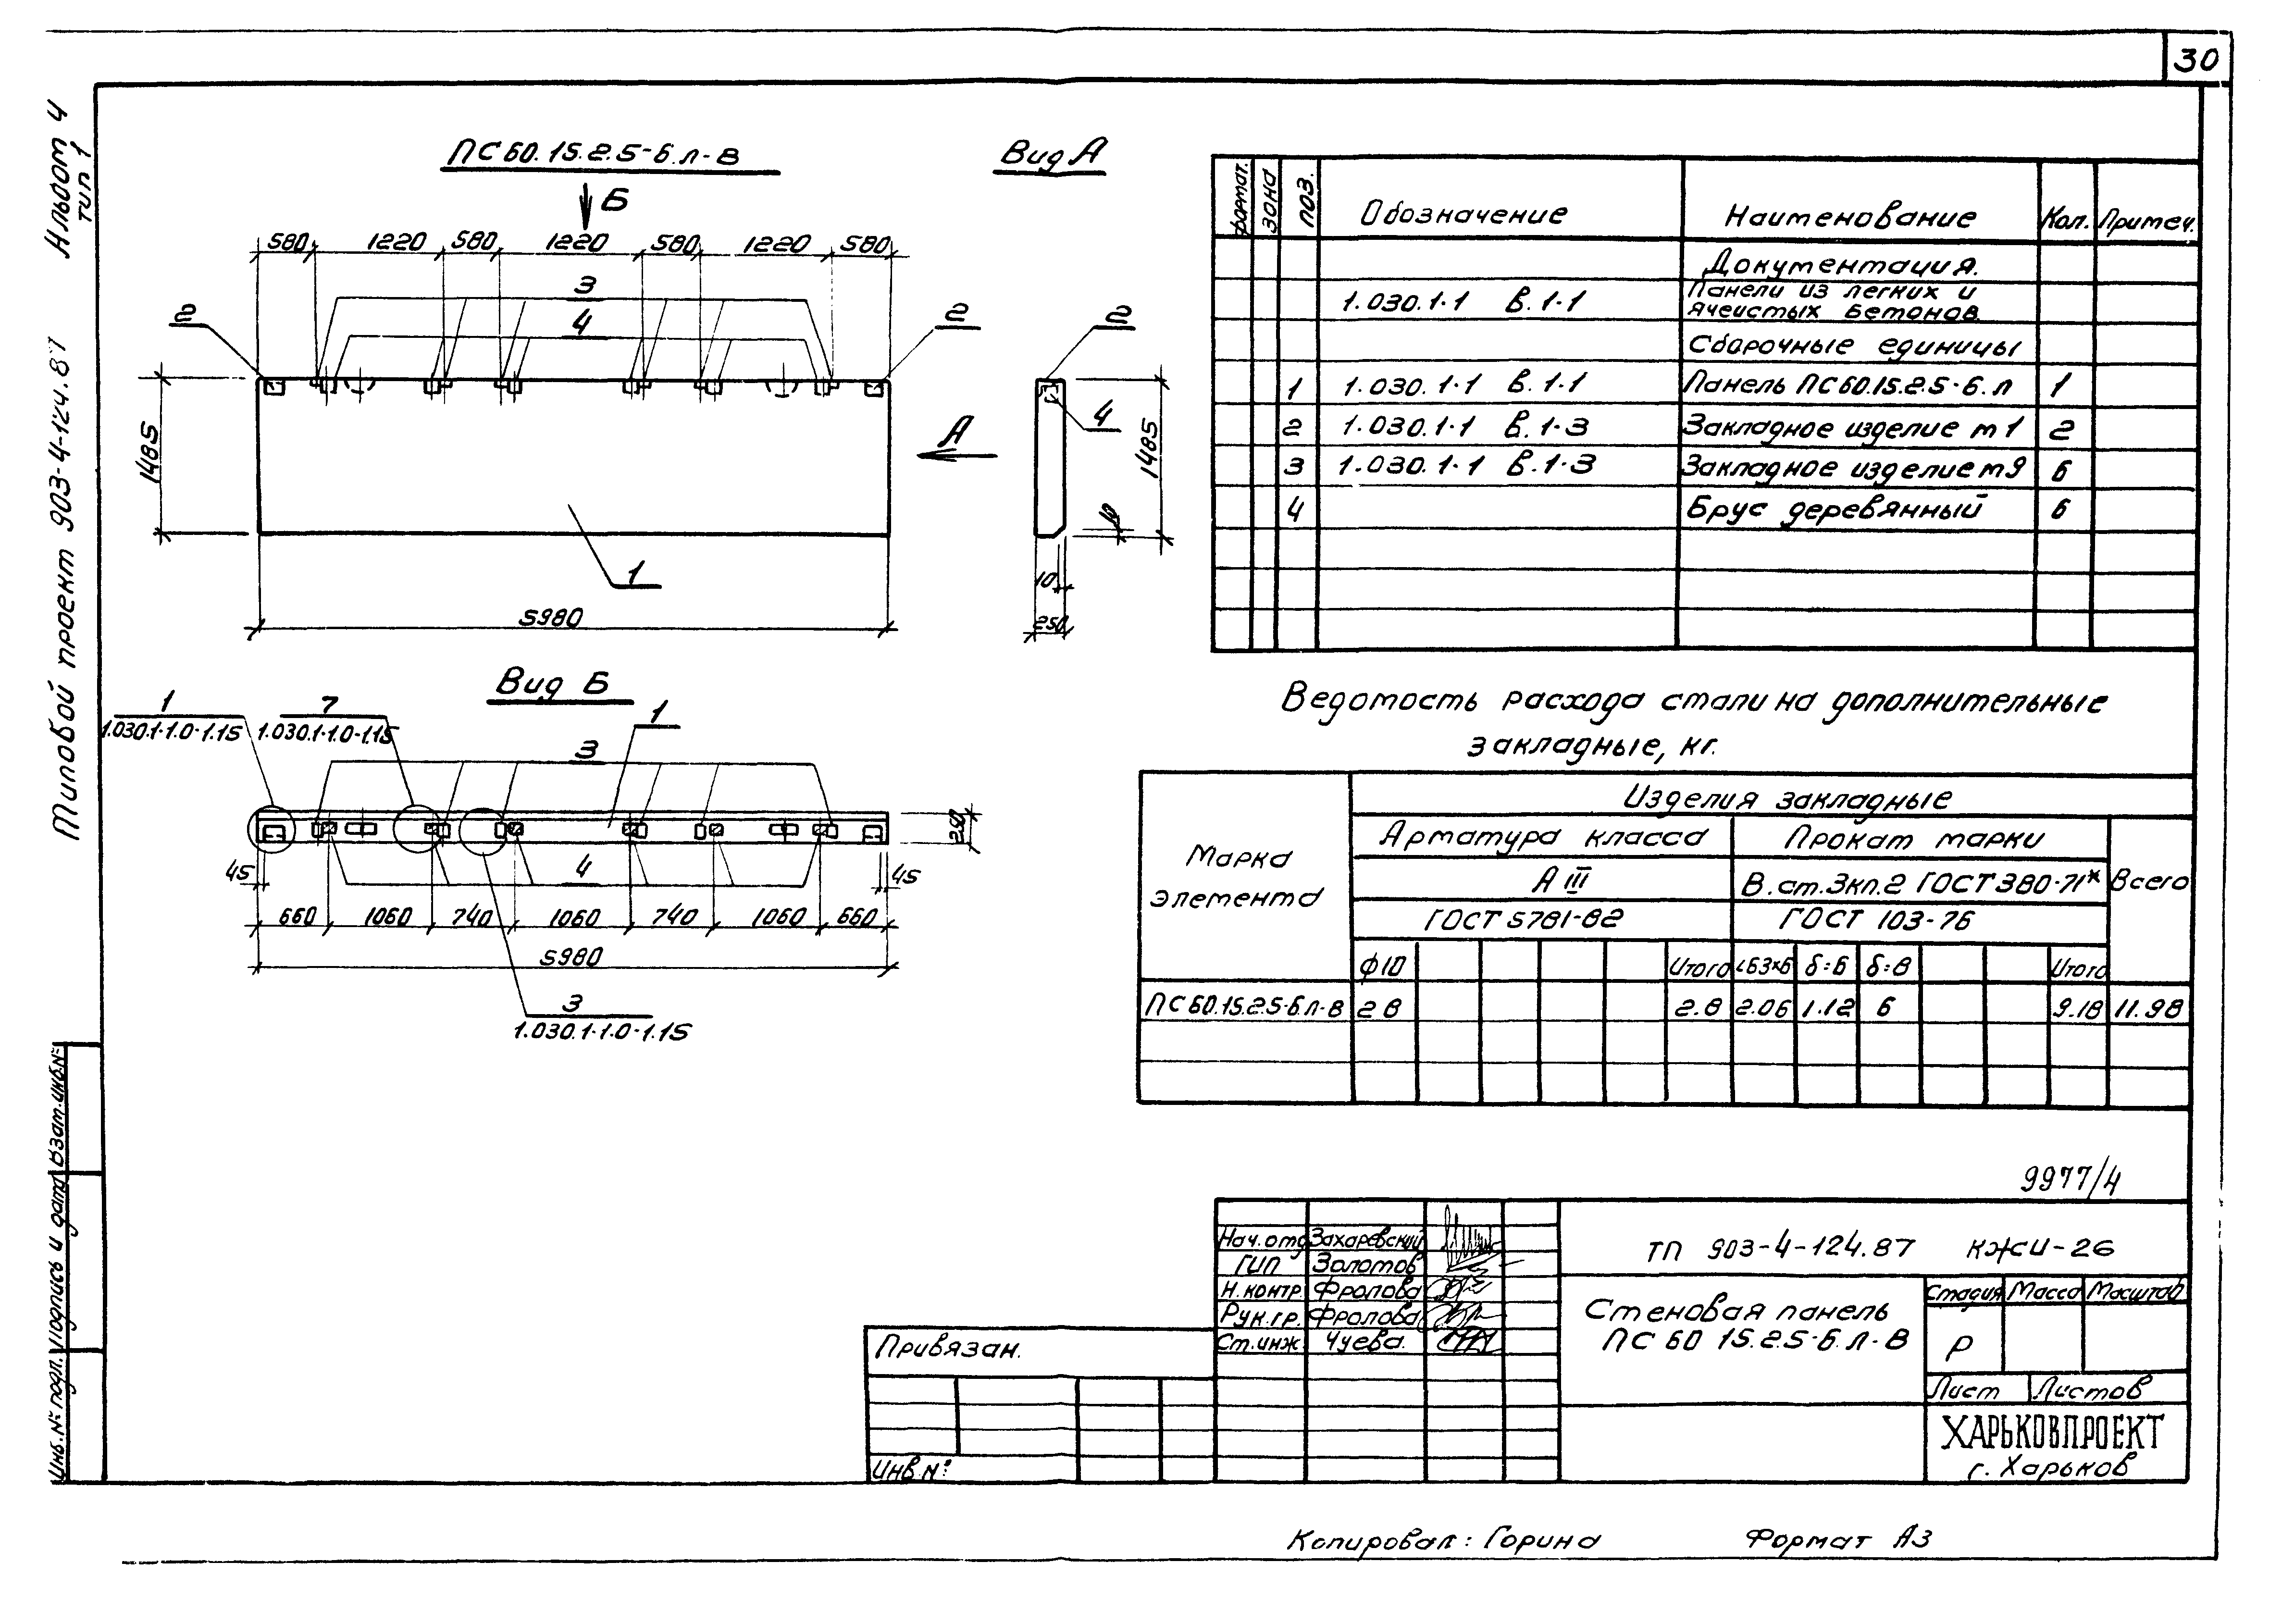 30
Альбом 4
тип 1
Типовой проект 903-4-124.87
ПС60.15.2.5-6.л-8
Вид А
Б
580 1220 580 1220 580 1220 580
3
4
2
2
2
4
А
1485
1485
10
10
250
1
5980
Вид Б
1
1.030.1-1.0-1.15
7
1.030.1-1.0-1.15
1
3
4
45
45
250
660 1060 740 1060 740 1060 660
5980
3
1.030.1-1.0-1.15
формат. зона поз. Обозначение Наименование Кол. Примеч.
Документация.
1.030.1-1 в.1-1 Панели из легких и
ячеистых бетонов.
Сборочные единицы
1 1.030.1-1 в.1-1 Панель ПС60.15.2.5-6.л 1
2 1.030.1-1 в.1-3 Закладное изделие м1 2
3 1.030.1-1 в.1-3 Закладное изделие м9 6
4 Брус деревянный 6
Ведомость расхода стали на дополнительные
закладные, кг.
Марка
элемента
Изделия закладные
Арматура класса Прокат марки
А III В.ст.3кп.2 ГОСТ380-71* Всего
ГОСТ 5781-82 ГОСТ 103-76
ф10 Итого ∟63х6 δ=6 δ=8 Итого
ПС60.15.2.5-6.л-8 2.8 2.8 2.06 1.12 6 9.18 11.98
9977/4
Нач.отд Захаревский
ГИП Золотов
Н.контр. Фролова
Рук.гр. Фролова
Ст.инж. Чуева.
ТП 903-4-124.87 КЖИ-26
Стеновая панель
ПС 60 15.2.5-6.л-8
Стадия Масса Масштаб
Р
Лист Листов
ХАРЬКОВПРОЕКТ
г. Харьков
Привязан.
Инв.№
Инв.№ подл. Подпись и дата Взам.инв.№
Копировал: Горина Формат А3